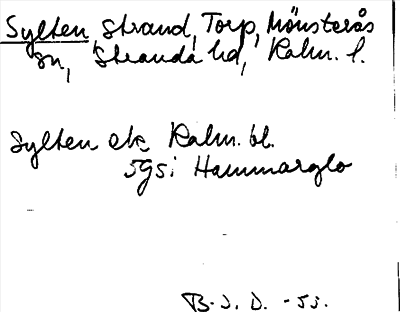 Sylten, Strand, Torp, Mönsterås
sn, Stranda hd, Kalm. l.
Sylten ek. Kalm. bl.
5g5i Hammarglo
B.J.D. -53.